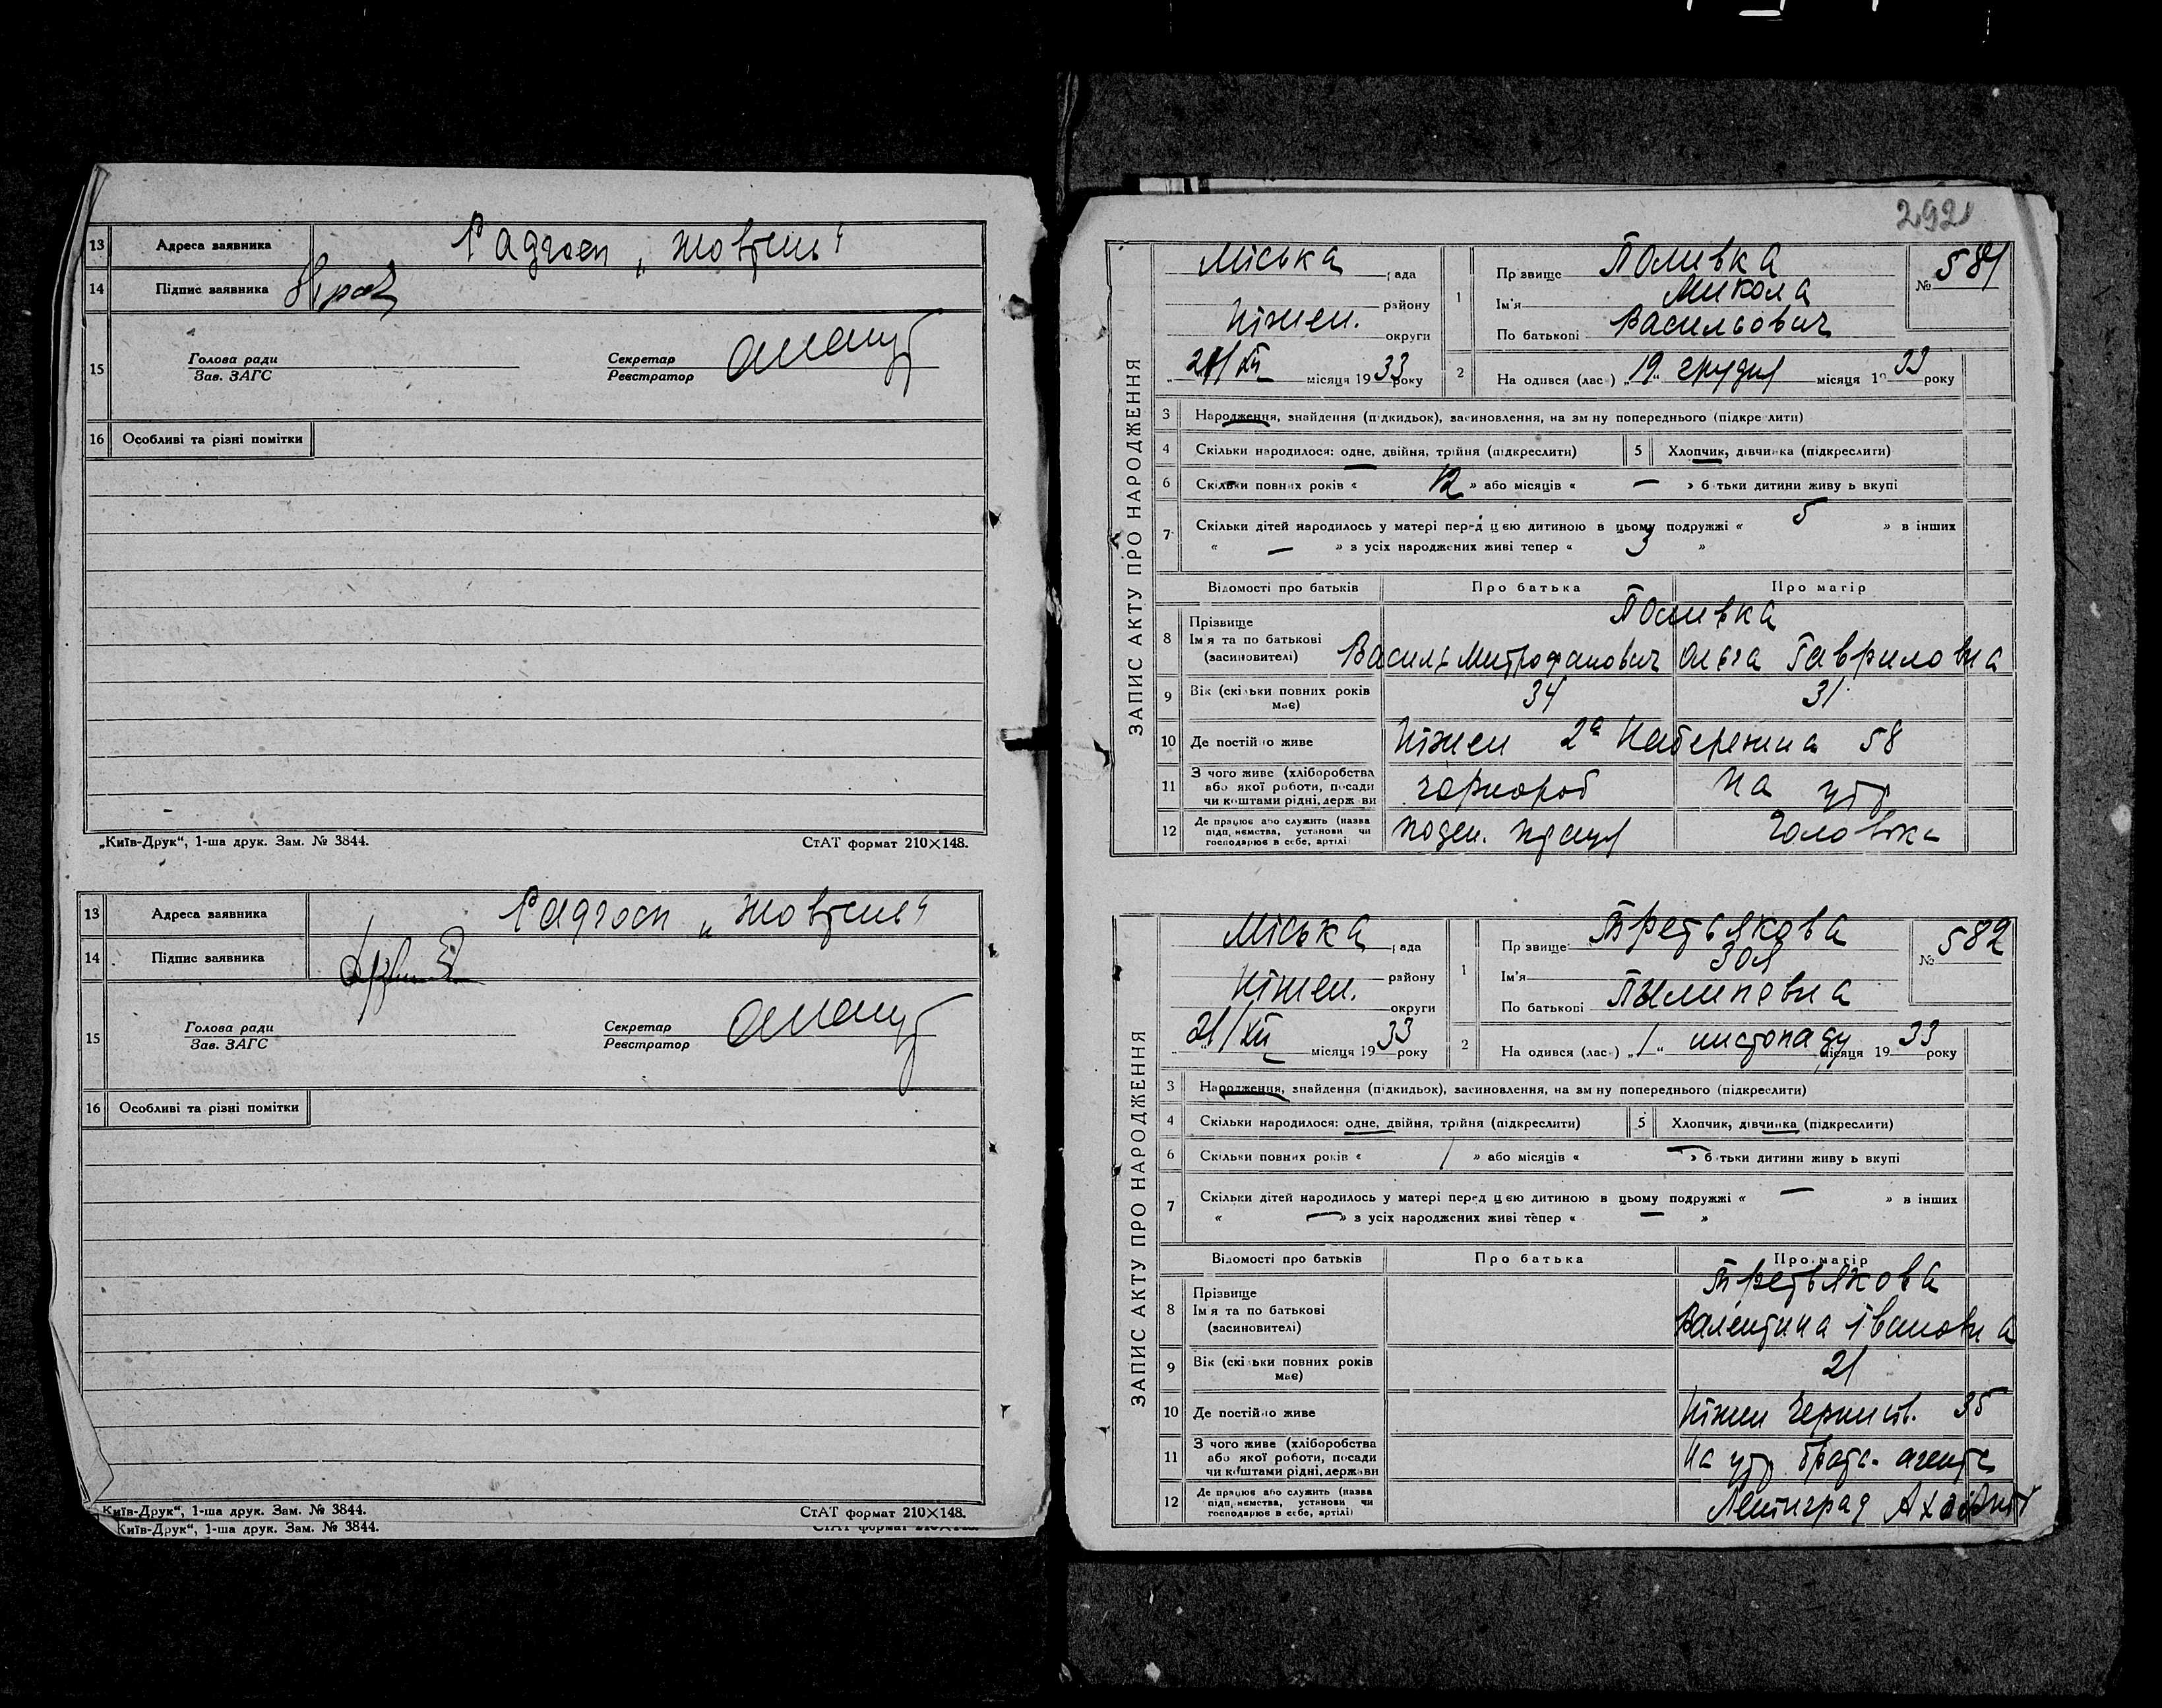 13 Адреса заявника Радгосп „Жовтень"
14 Підпис заявника
15 Голова ради Секретар
Зав. ЗАГС Реєстратор
16 Особливі та різні помітки
„Київ-Друк“, 1-ша друк. Зам. № 3844. СтАТ формат 210×148.
13 Адреса заявника Радгосп „Жовтень"
14 Підпис заявника
15 Голова ради Секретар
Зав. ЗАГС Реєстратор
16 Особливі та різні помітки
Київ-Друк“, 1-ша друк. Зам. № 3844. СтАТ формат 210×148.
Київ-Друк“, 1-ша друк. Зам. № 3844.
292
ЗАПИС АКТУ ПРО НАРОДЖЕННЯ
Міська рада
району
Ніжен. округи
21/XII місяця 1933 року
1 Прізвище Поливка № 581
Ім'я Микола
По батькові Васильович
2 Народився (лась) „19“ грудня місяця 1933 року
3 Народження, знайдення (підкидьок), засиновлення, на зміну попереднього (підкреслити)
4 Скільки народилося: одне, двійня, трійня (підкреслити) 5 Хлопчик, дівчинка (підкреслити)
6 Скільки повних років « 12 » або місяців « — » батьки дитини живуть вкупі
7 Скільки дітей народилось у матері перед цією дитиною в цьому подружжі « 5 » в інших
« — » з усіх народжених живі тепер « 3 »
Відомості про батьків Про батька Про матір
8 Прізвище Поливка
Ім'я та по батькові Василь Митрофанович Ольга Гавриловна
(засиновителі)
9 Вік (скільки повних років 34 31
має)
10 Де постійно живе Ніжен 2а Набережна 58
11 З чого живе (хліборобства чорнороб на утр
або якої роботи, посади
чи коштами рідні, держави
12 Де працює або служить (назва поден. праця чоловіка
підприємства, установи чи
господарює в себе, артілі)
ЗАПИС АКТУ ПРО НАРОДЖЕННЯ
Міська рада
району
Ніжен. округи
21/XII місяця 1933 року
1 Прізвище Третьякова № 582
Ім'я Зоя
По батькові Пылиповна
2 Народився (лась) „1“ листопаду місяця 1933 року
3 Народження, знайдення (підкидьок), засиновлення, на зміну попереднього (підкреслити)
4 Скільки народилося: одне, двійня, трійня (підкреслити) 5 Хлопчик, дівчинка (підкреслити)
6 Скільки повних років « 1 » або місяців « — » батьки дитини живуть вкупі
7 Скільки дітей народилось у матері перед цією дитиною в цьому подружжі « — » в інших
« — » з усіх народжених живі тепер « — »
Відомості про батьків Про батька Про матір
8 Прізвище Третьякова
Ім'я та по батькові Валентина Івановна
(засиновителі)
9 Вік (скільки повних років 21
має)
10 Де постійно живе Ніжен Черниг. 35
11 З чого живе (хліборобства на утр. брата - агента
або якої роботи, посади
чи коштами рідні, держави
12 Де працює або служить (назва Ленинград
підприємства, установи чи
господарює в себе, артілі)